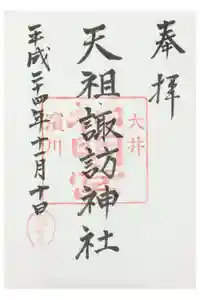 奉拝
大井
天祖諏訪神社
濱川
平成二十四年十一月十日